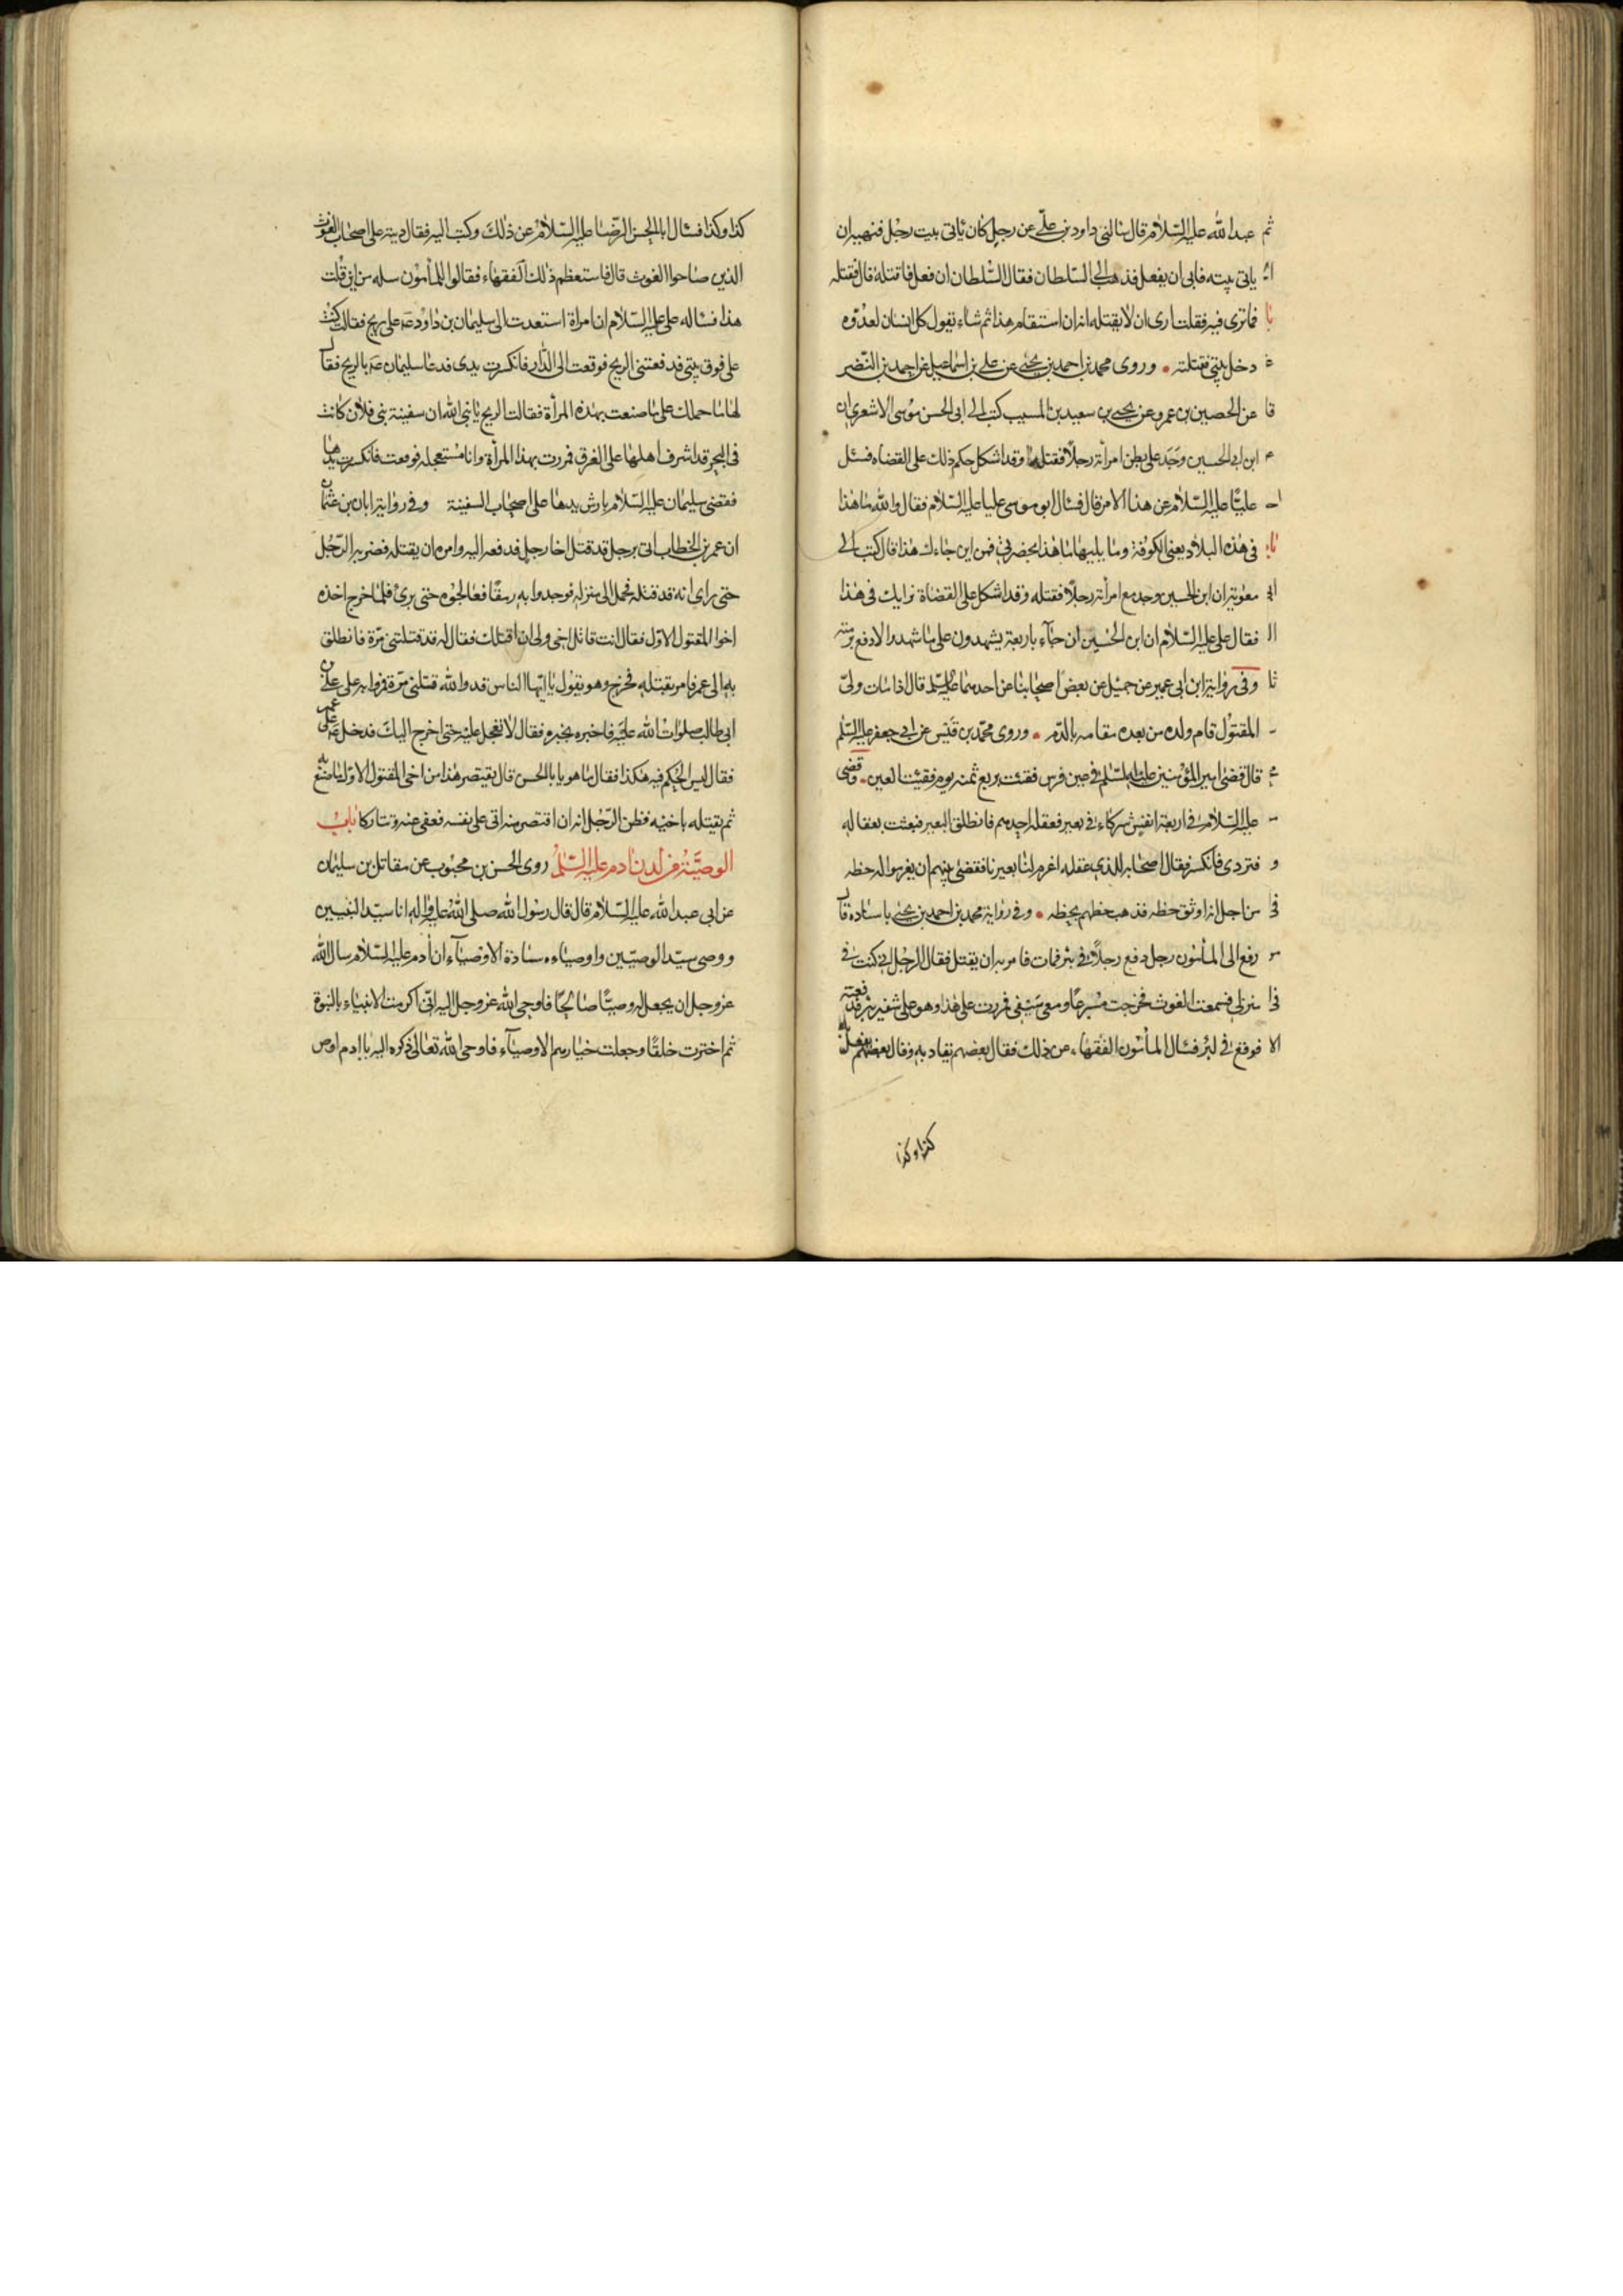 عبد الله عليه السلام قال سالني داود بن علي عن رجل كان ياتي بيت رجل فنهيه ان
ياتي بيته فابى ان يفعل فذهب الى السلطان فقال السلطان ان فعل فاقتله قال فقتله
فما ترى فيه فقلت ارى ان لا يقتله انه ان استقام هذا ثم شاء يقول كل انسان لعدوه
دخل بيتي فقتلته • وروى محمد بن احمد بن يحيى عن علي بن اسماعيل عن احمد بن النضر
عن الحصين بن عمرو عن يحيى بن سعيد بن المسيب كتب الى ابي الحسن موسى الاشعري ان
ابن ابي الحسين وجد على بطن امرأته رجلاً فقتله وقد اشكل حكم ذلك على القضاه فسئل
علياً عليه السلام عن هذا الامر قال فسئال ابو موسى عليا عليه السلام فقال والله ما هذا
في هذه البلاد يعني الكوفة وما يليها ما هذا بحضرتي فمن اين جاءك هذا قال كتب الى
معوية ان ابن الحسين وجد مع امرأته رجلاً فقتله وقد اشكل على القضاة فرايك في هذا
فقال على عليه السلام ان ابن الحسين ان جاء باربعة يشهدون على ما شهد والا دفع برمته
وفي رواية ابن ابي عمير عن جميل عن بعض اصحابنا عن احدهما عليه السلم قال اذا مات ولي
المقتول قام ولده من بعده مقامه بالدم • وروى محمد بن قيس عن ابي جعفر عليه السلم
قال قضى امير المؤمنين عليه السلم في عين فرس فقئت بربع ثمنه يوم فقيت العين • وقضى
عليه السلام في اربعة انفس شركاء في بعير فعقله احدهم فانطلق البعير فبعثت بعقاله
فتردى فانكسر فقال اصحابه للذي عقله اغرم لنا بعيرنا فقضى بينهم ان يغرموا له حظه
من اجل انه اوثق حظه فذهب حظهم بحظه • وفي رواية محمد بن احمد بن يحيى باسناده قال
رفع الى المأمون رجل دفع رجلاً في بئر فمات فامر به ان يقتل فقال الرجل اني كنت في
منزلي فسمعت الغوث فخرجت مسرعاً ومعي سيفي فمررت على هذا وهو على شفير بئر فدفعته
فوقع في لبئر فسئال المأمون الفقهاء عن ذلك فقال بعضهم يقاد به وقال بعضهم يفعل به
كذا وكذا
كذا وكذا فسئال ابا الحسن الرضا عليه السلام عن ذلك وكتب اليه فقال ديته على اصحاب الغوث
الذين صاحوا الغوث قال فاستعظم ذلك الفقهاء فقالوا للمأمون سله من اين قلت
هذا فسئاله على عليه السلام ان امراة استعدت الى سليمان بن داود عَه على ريح فقالت كنت
على فوق بيتي فدفعتني الريح فوقعت الى الدار فانكسرت يدى فدعا سليمان عَه بالريح فقال
لها ما حملك على ما صنعت بهذه المرأة فقالت الريح يا نبي الله ان سفينة بني فلان كانت
في البحر قد اشرف اهلها على الغرق فمررت بهذا المرأة وانا مستعجله فوقعت فانكسرت يدها
فقضى سليمان عليه السلام بارش يدها على اصحاب السفينة وفي رواية ابان بن عثمان
ان عمر بن الخطاب اتي برجل قد قتل اخا رجل فدفعه اليه وامره ان يقتله فضربه الرجل
حتى راى انه قد قتله فحمل الى منزله فوجدوا به رمقاً فعالجوه حتى برئ فلما خرج اخذه
اخوا المقتول الاول فقال انت قاتل اخي ولى ان اقتلك فقال له قد قتلتني مرة فانطلق
به الى عمر فامر بقتله فخرج وهو يقول يا ايها الناس قد والله قتلني مرة فمروا به على علي بن
ابي طالب صلوات الله عليه فاخبره بخبره فقال لا تعجل عليه حتى اخرج اليك فدخل عَه على عمر
فقال ليس الحكم فيه هكذا فقال ما هو يا بالحسن قال يقتص هذا من اخي المقتول الاول ما صنع به
ثم يقتله باخيه فظن الرجل انه ان اقتص منه اتى على نفسه فعفى عنه وتتاركا باب
الوصية من لدن ادم عليه السلم روى الحسن بن محبوب عن مقاتل بن سليمان
عن ابي عبد الله عليه السلام قال قال رسول الله صلى الله عليه واله انا سيد النبيين
ووصى سيد الوصيين واوصياءه سادة الاوصياء ان ادم عليه السلام سال الله
عز وجل ان يجعل له وصيا صالحا فاوحى الله عز وجل اليه اني اكرمت الانبياء بالنبوة
ثم اخترت خلقا وجعلت خيارهم الاوصياء فاوحى الله تعالى ذكره اليه يا ادم اوص